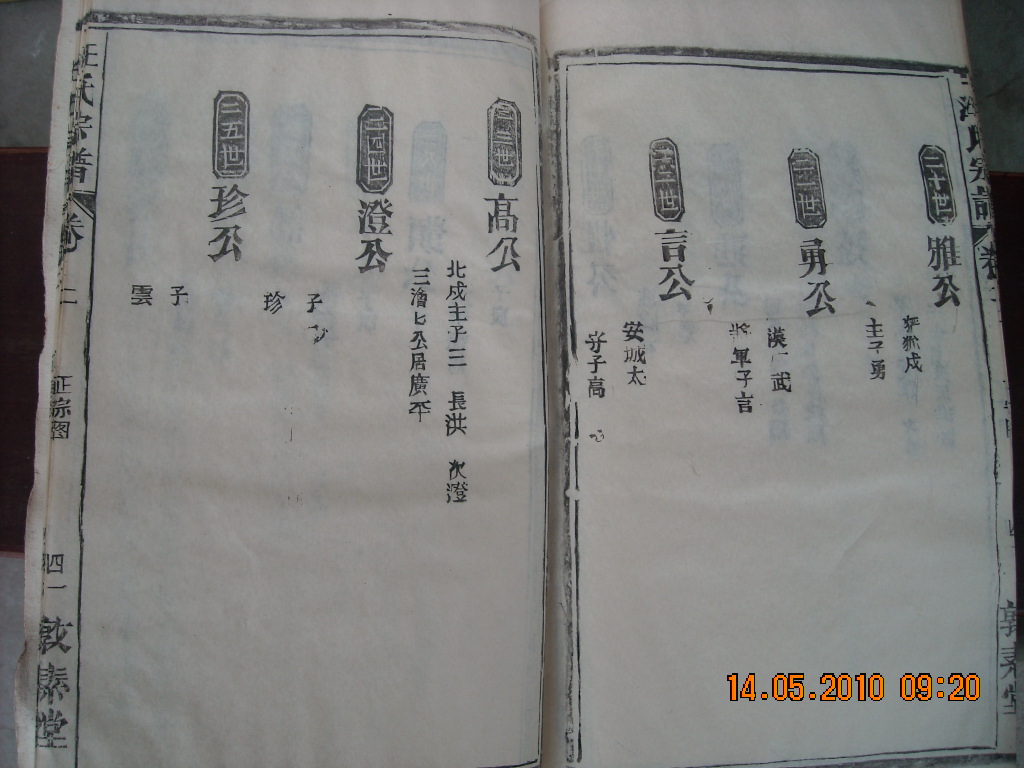 二十世
雅公
猃狁戍
主子勇
二一世
勇公
漢一武
將軍子言
二二世
言公
安城太
守子高
二三世
高公
北戍主子三 長洪 次澄
三濬匕公居廣平
二四世
澄公
子
珍
二五世
珍公
子
雲
汪氏宗譜
卷二
正宗图
四一
敦素堂
14.05.2010 09:20